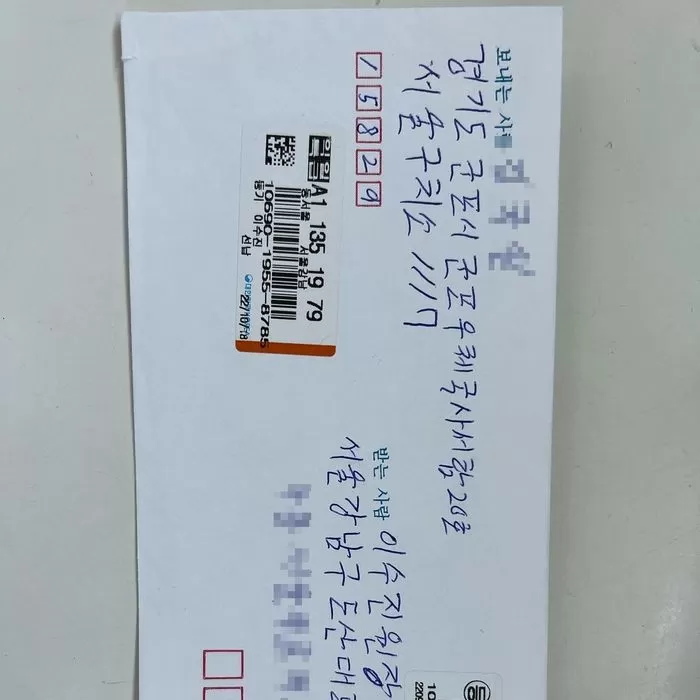 보내는 사람
경기도 군포시 군포우체국사서함 20호
서울구치소 11117
15829
익일
특급
A1 135 19 79
동서울 서울강남
10690-1955-8785
등기 이수진
선납
22/10/18
받는 사람
이수진원장
서울강남구 도산대로
등